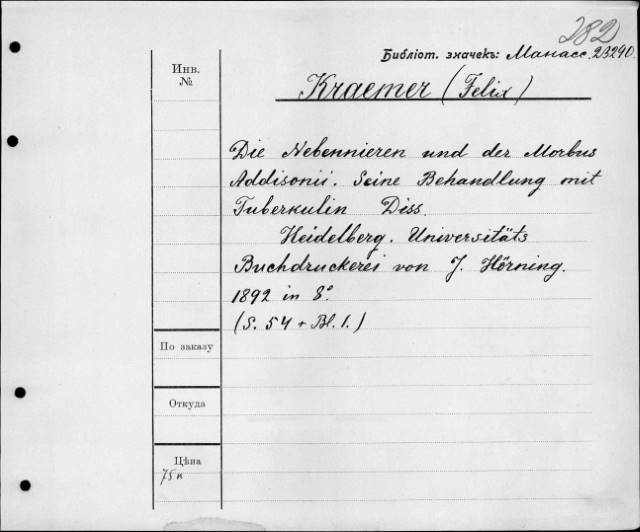 282
Библіот. значекъ: Манасс. 23290.
Инв.
№
Kraemer (Felix)
Die Nebennieren und der Morbus
Addisonii. Seine Behandlung mit
Tuberkulin Diss.
Heidelberg. Universitäts
Buchdruckerei von J. Hörning.
1892 in 8°.
(S. 54 + Bl. 1.)
По заказу
Откуда
Цѣна
75 к